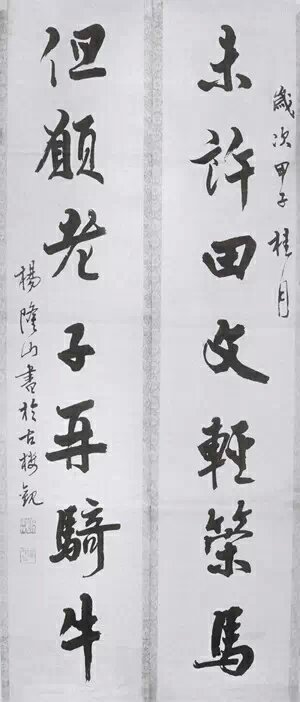 歲次甲子桂月
未許田文輕策馬
但願老子再騎牛
楊隆山書於古樓觀